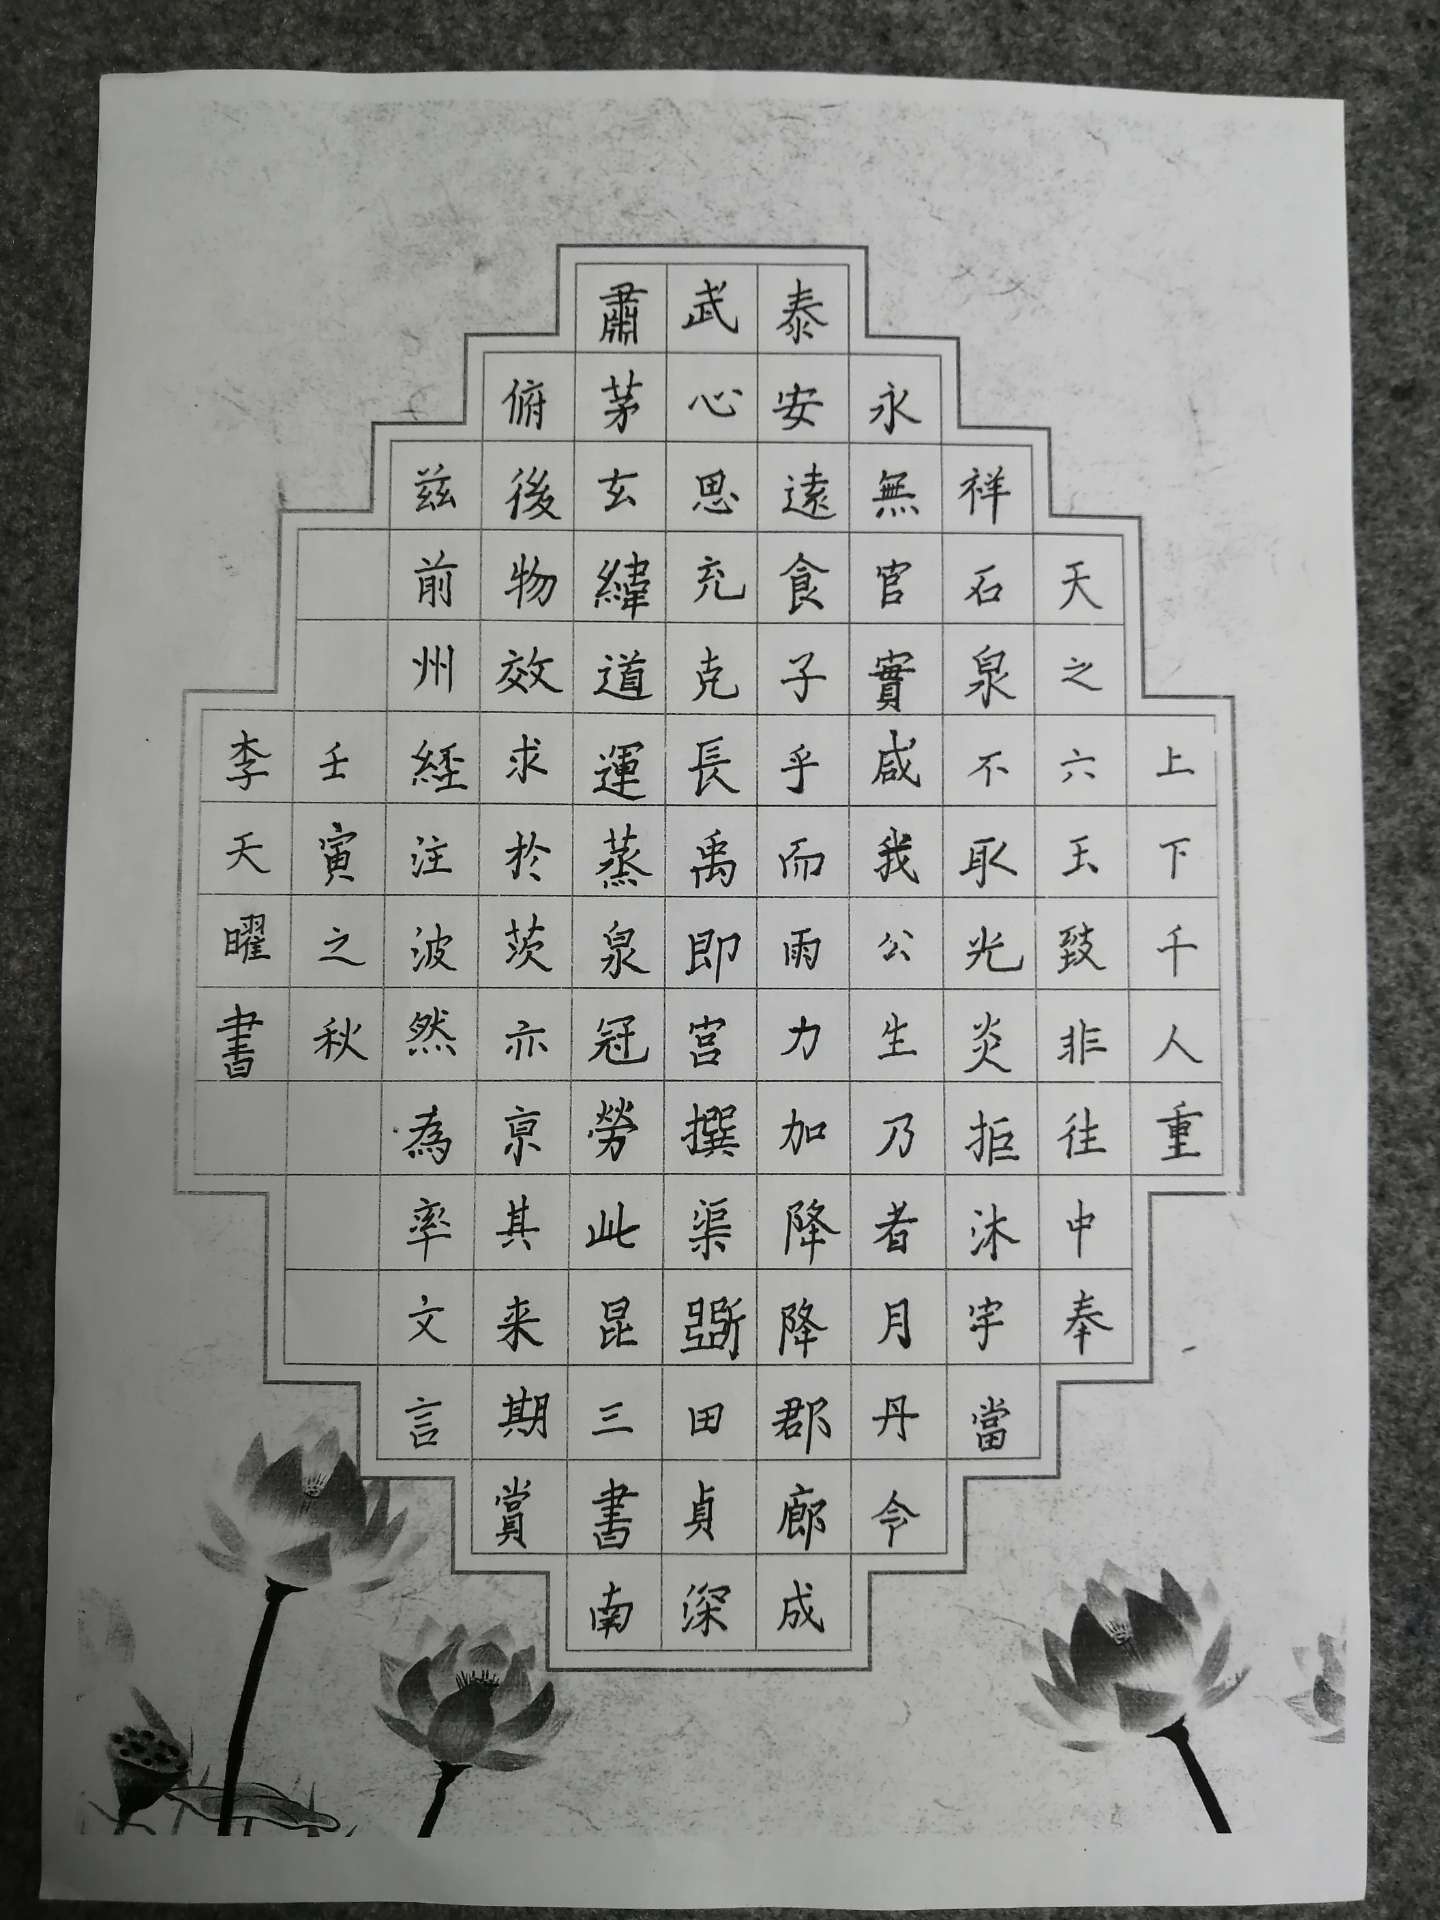 上下千人重
天之六玉致非往中奉
祥石泉不取光炎拒沐宇當
永無官實咸我公生乃者月丹令
泰安遠食子乎而雨力加降降郡廊成
武心思充克長禹即宫撰渠田貞深
肅茅玄緯道運蒸泉冠勞此昆三書南
俯後物效求於茨亦京其来期賞
兹前州經注波然為率文言
壬寅之秋
李天曜書